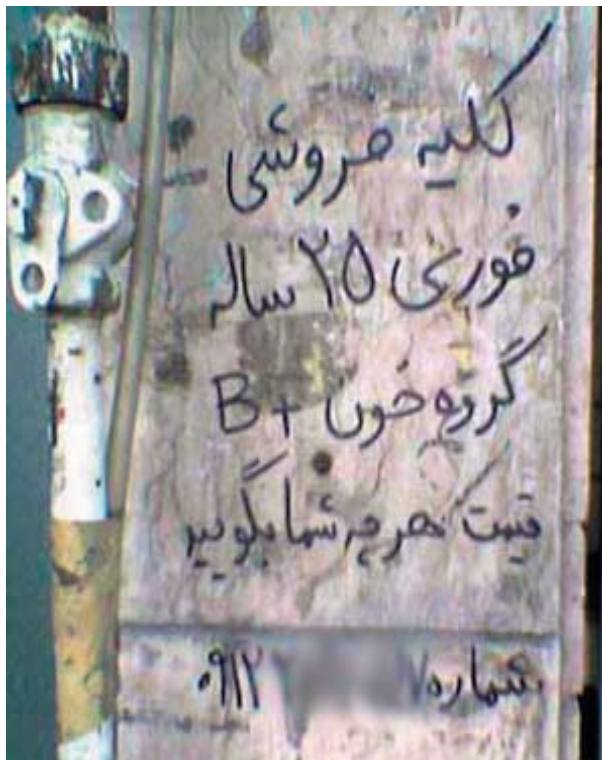 کلیه فروشی
فوری ۲۵ ساله
گروه خون B+
قیمت هرچه شما بگویید
شماره ۰۹۱۲